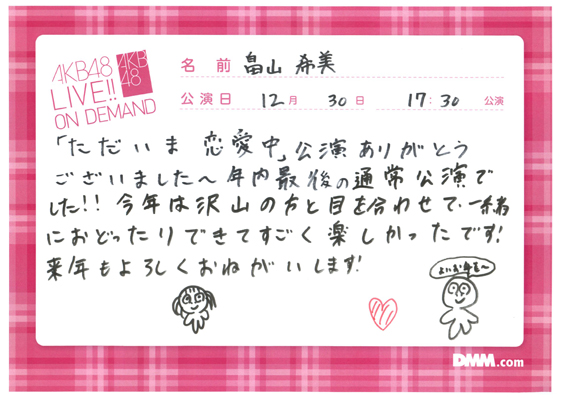 AKB48
LIVE!!
ON DEMAND
AKB
48
名前 畠山 希美
公演日 12月 30日 17:30 公演
「ただいま 恋愛中」公演ありがとう
ございました〜年内最後の通常公演で
した!!今年は沢山の方と目を合わせて、一緒
におどったりできてすごく楽しかったです!
来年もよろしくおねがいします!
よいお年を〜
DMM.com